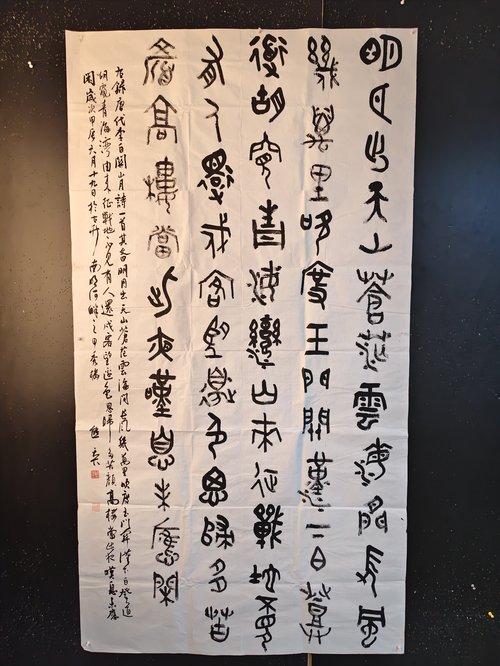 明月出天山蒼茫雲海間長風
幾萬里吹度玉門關漢下白登
道胡窺青海灣由來征戰地不見
有人還戍客望邊色思歸多苦
顏高樓當此夜嘆息未應閑
右錄唐代李白關山月詩一首其明月出天山蒼茫雲海間長風幾萬里吹度玉門關漢下白登道
胡窺青海灣由來征戰地不見有人還戍客望邊色思歸多苦顏高樓當此夜嘆息未應
閑歲次甲辰六月十九日於